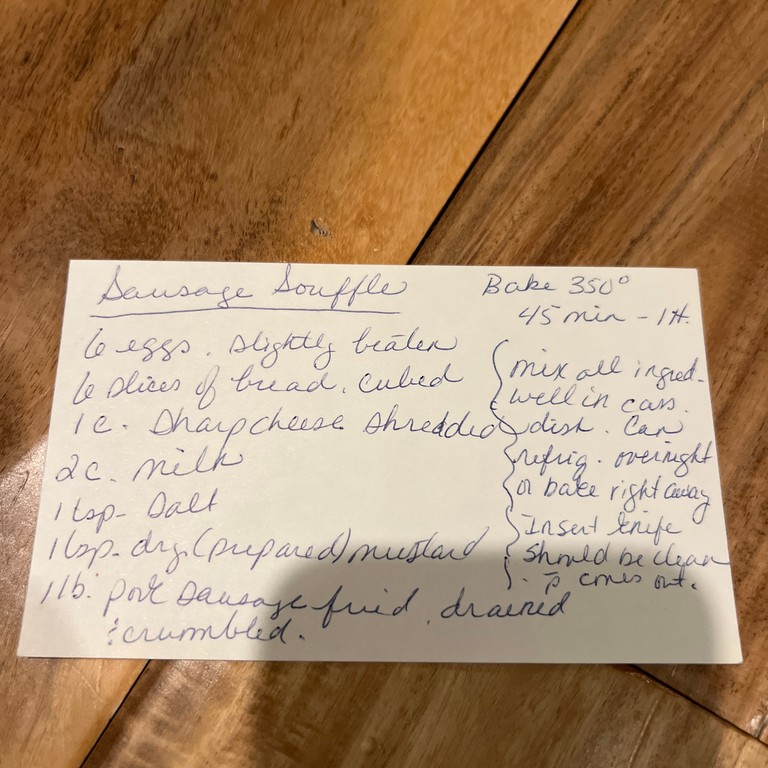 Sausage Souffle
Bake 350°
45 min - 1 H.
6 eggs. slightly beaten
6 slices of bread. cubed
1 c. Sharp cheese shredded
2 c. milk
1 tsp. Salt
1 tsp. dry (prepared) mustard
1 lb. pork sausage fried, drained
& crumbled.
mix all ingred-
well in cass.
dish. Can
refrig. overnight
or bake right away
Insert knife
should be clean
comes out.